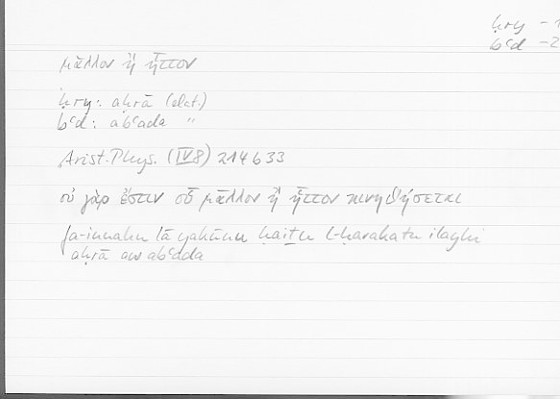 ḥry - 1
bʿd - 2
μᾶλλον ἢ ἧττον
ḥry: aḥrā (elat.)
bʿd: abʿada "
Arist. Phys. (IV 8) 214 b 33
οὐ γὰρ ἔστιν οὗ μᾶλλον ἢ ἧττον κινηθήσεται
fa-innahu lā yakūnu ḥaiṯu l-ḥarakatu ilayhi
aḥrā aw abʿada